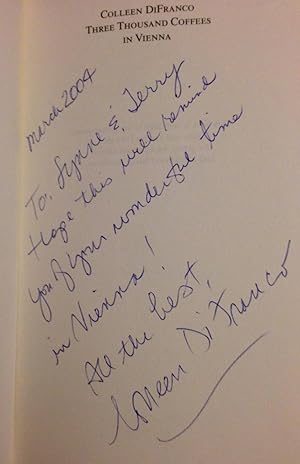 COLLEEN DIFRANCO
THREE THOUSAND COFFEES
IN VIENNA
march 2004
To Lynne & Terry
Hope this will remind
you of your wonderful time
in Vienna!
All the best,
Colleen DiFranco